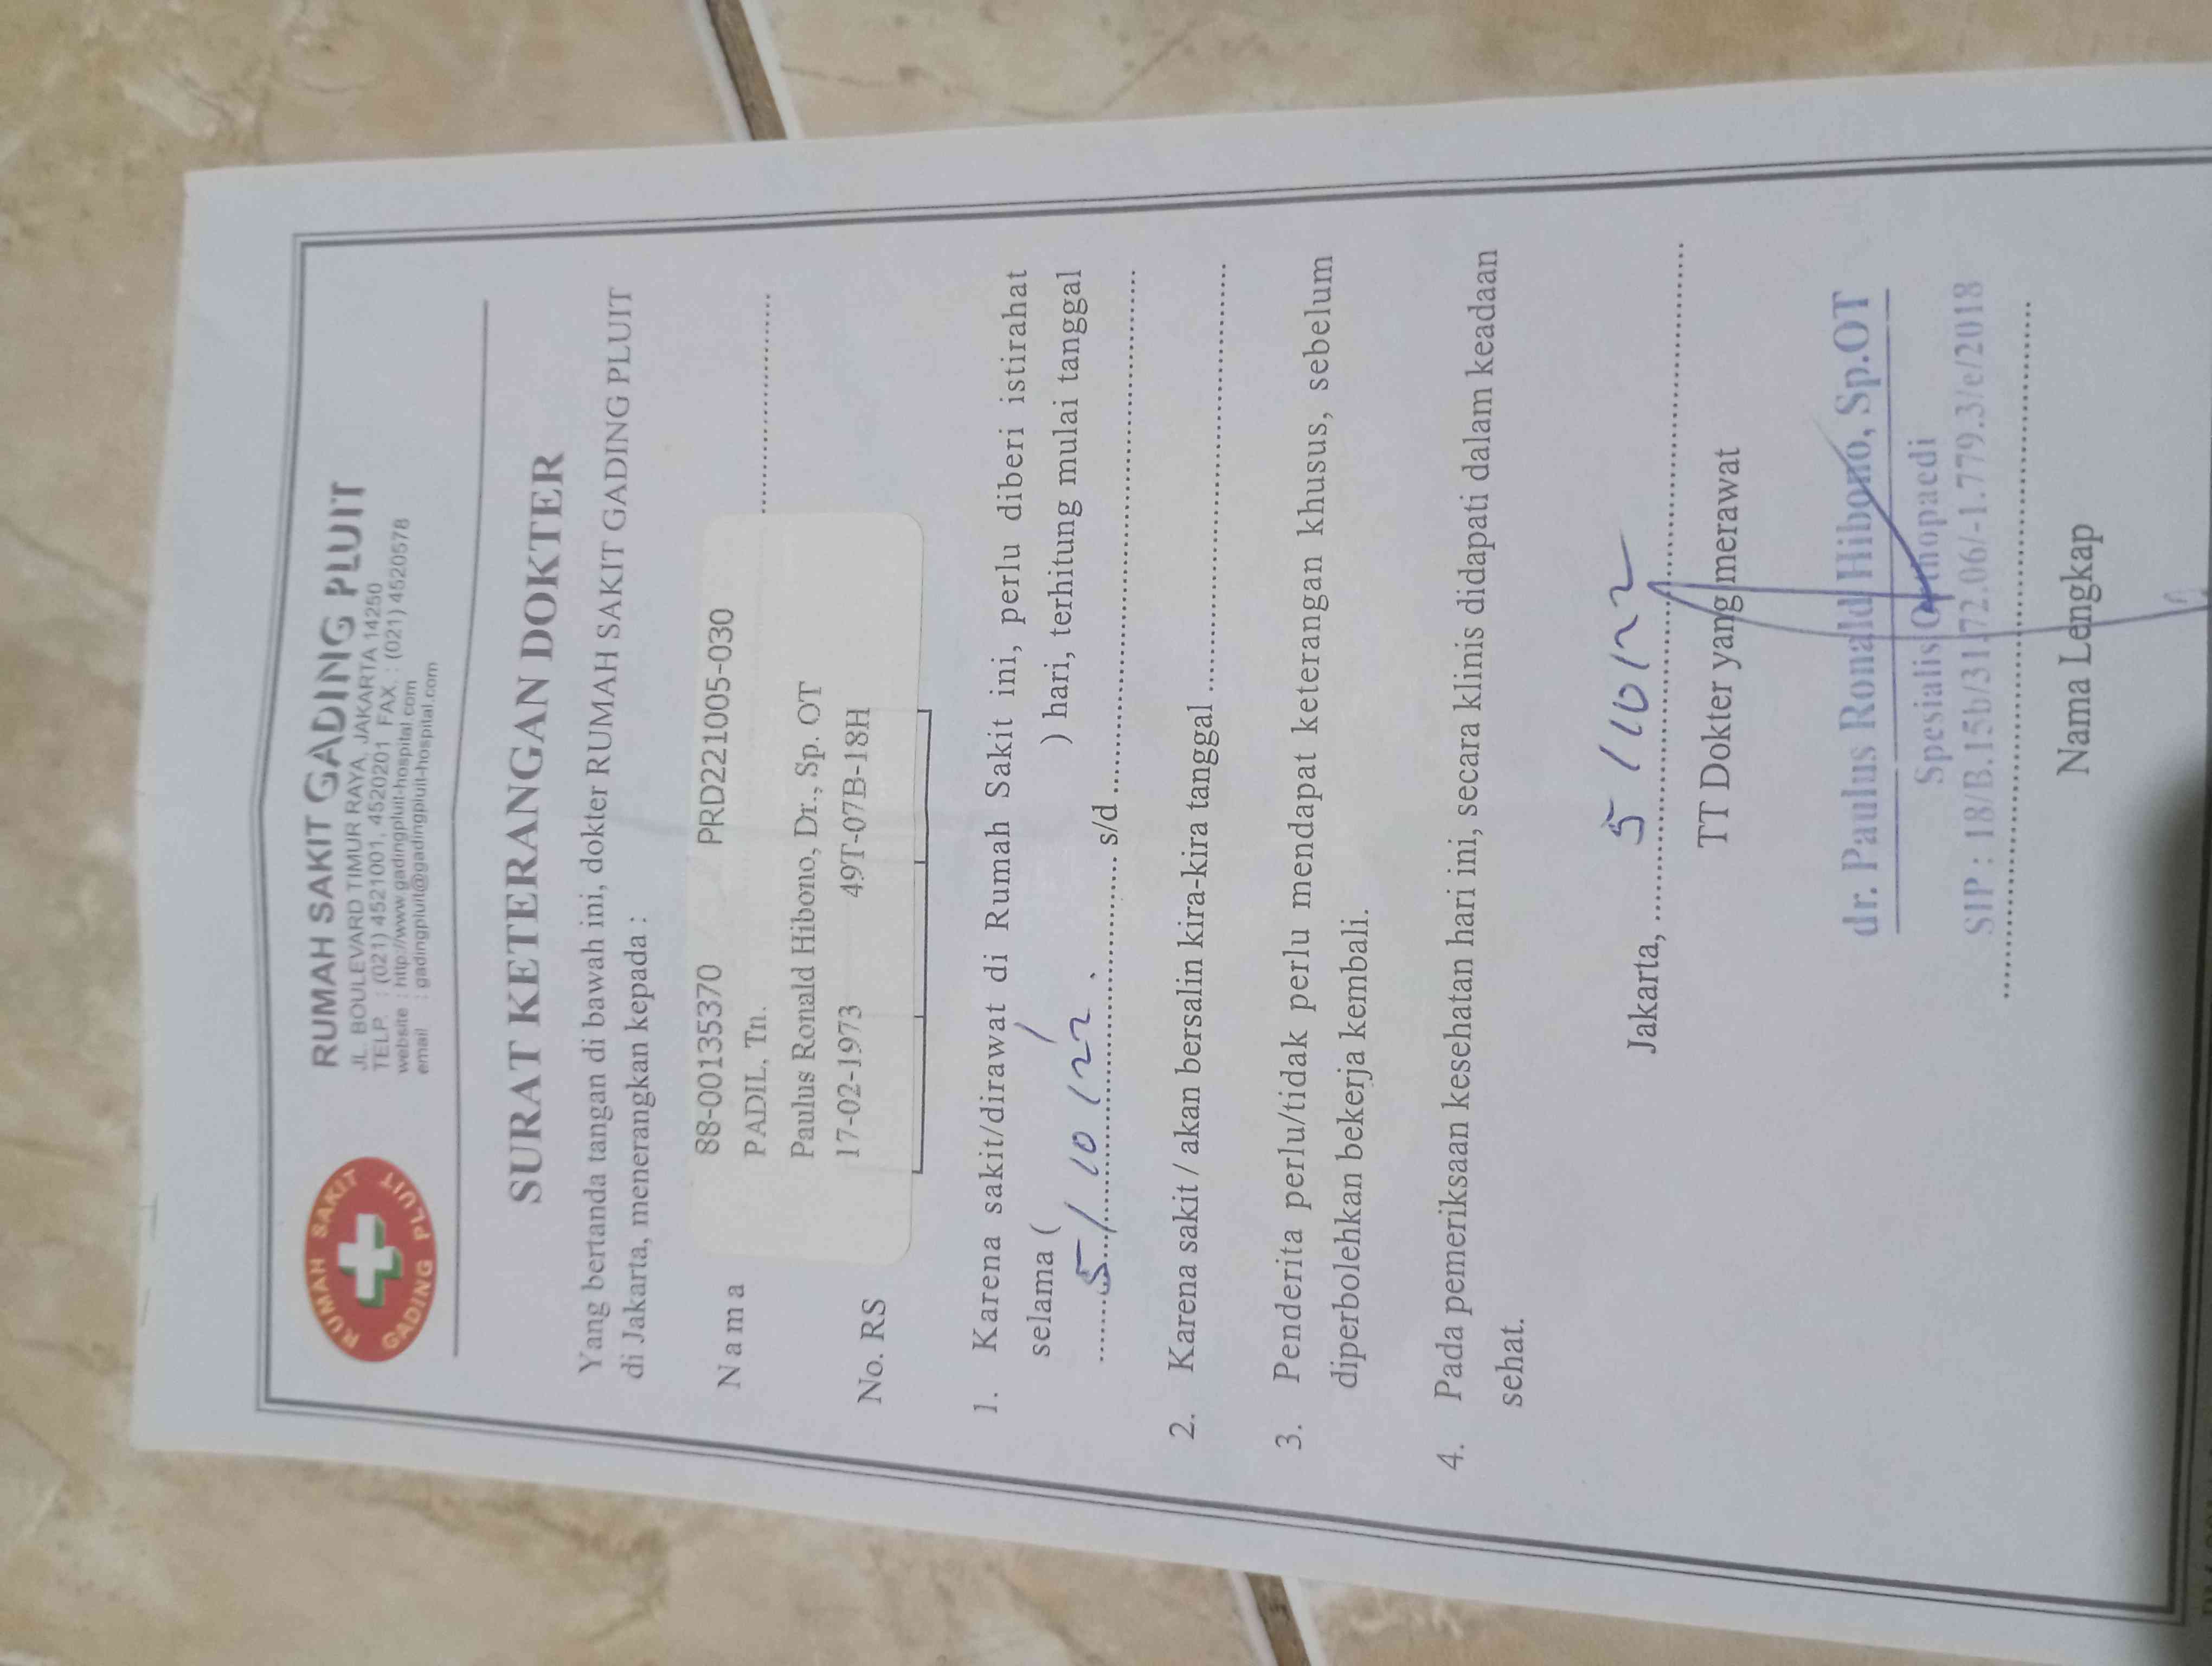 RUMAH SAKIT GADING PLUIT
RUMAH SAKIT GADING PLUIT
JL. BOULEVARD TIMUR RAYA, JAKARTA 14250
TELP. : (021) 4521001, 4520201 FAX. : (021) 4520578
website : http://www.gadingpluit-hospital.com
email : gadingpluit@gadingpluit-hospital.com
SURAT KETERANGAN DOKTER
Yang bertanda tangan di bawah ini, dokter RUMAH SAKIT GADING PLUIT
di Jakarta, menerangkan kepada :
88-00135370 PRD221005-030
Nama PADIL. Tn.
Paulus Ronald Hibono, Dr., Sp. OT
No. RS 17-02-1973 49T-07B-18H
1. Karena sakit/dirawat di Rumah Sakit ini, perlu diberi istirahat
selama ( / ) hari, terhitung mulai tanggal
5/10/22 s/d
2. Karena sakit / akan bersalin kira-kira tanggal
3. Penderita perlu/tidak perlu mendapat keterangan khusus, sebelum
diperbolehkan bekerja kembali.
4. Pada pemeriksaan kesehatan hari ini, secara klinis didapati dalam keadaan
sehat.
Jakarta, 5/10/22
TT Dokter yang merawat
dr. Paulus Ronald Hibono, Sp.OT
Spesialis Orthopaedi
SIP : 18/B.15b/31.72.06/-1.779.3/e/2018
Nama Lengkap